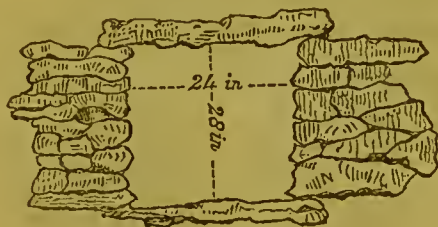 24 in
28 in